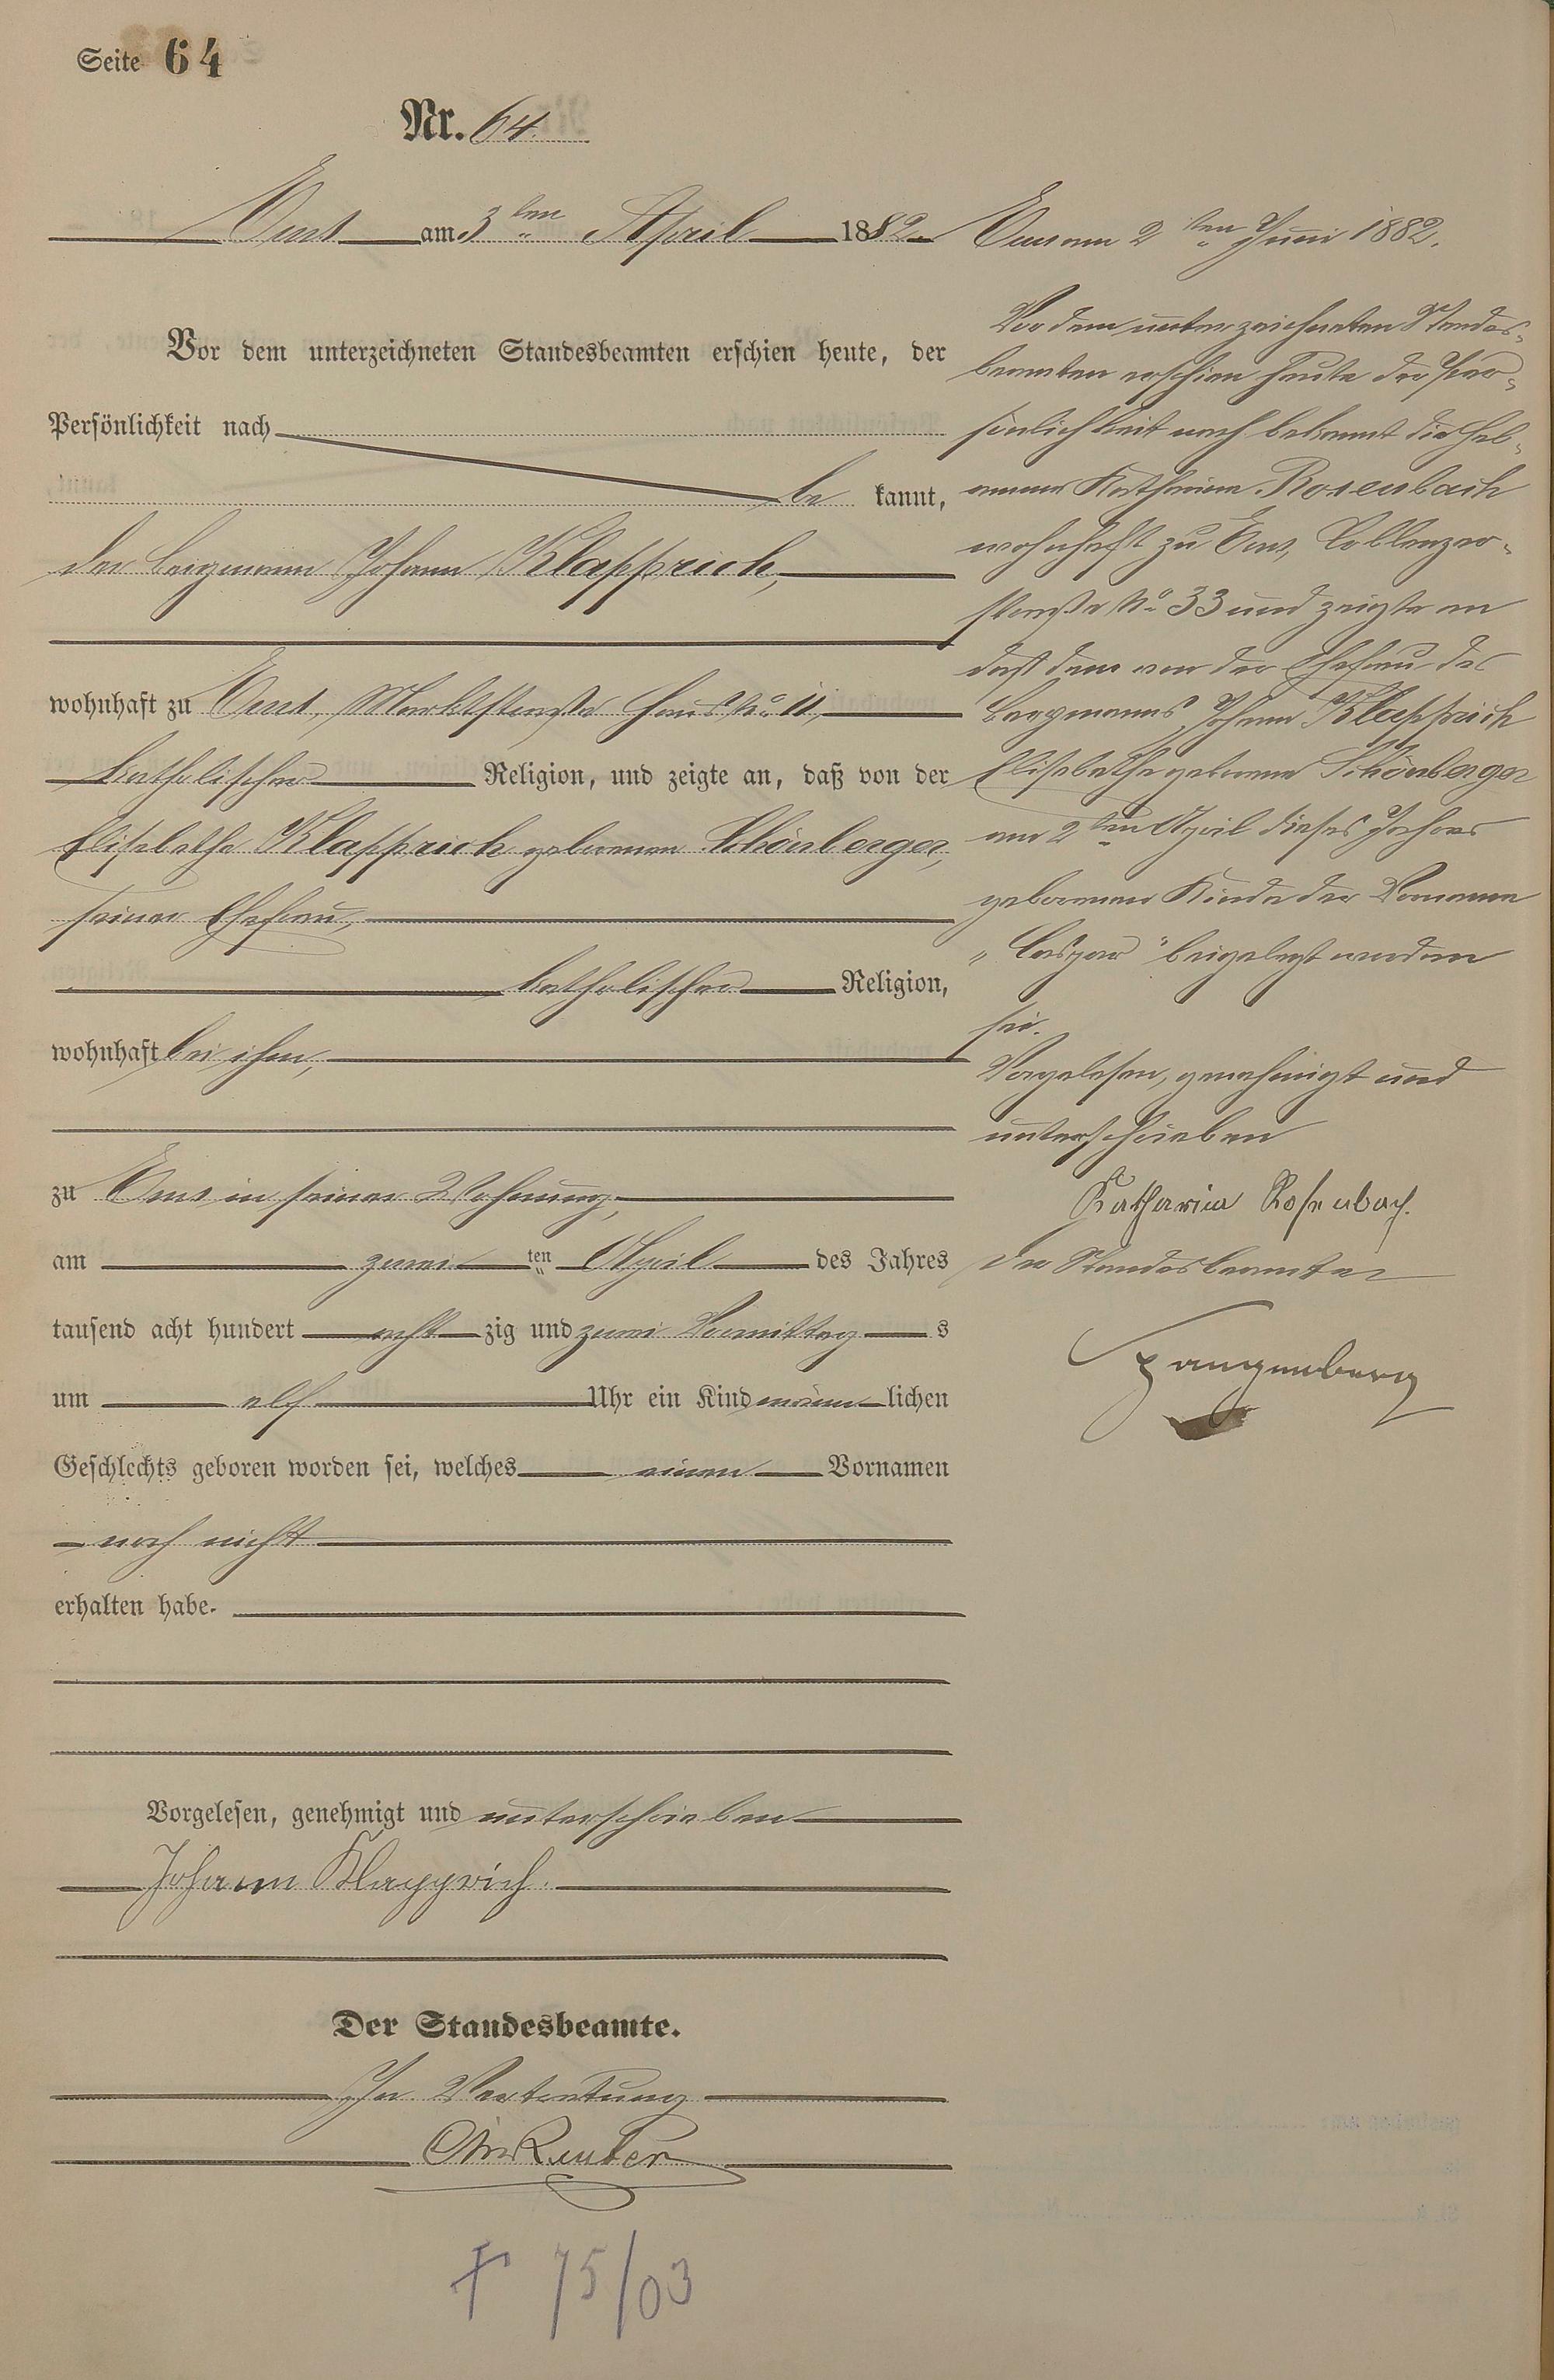 Seite 64
Nr. 64.
Ems am 3ten April 1882.
Vor dem unterzeichneten Standesbeamten erschien heute, der
Persönlichkeit nach
be kannt,
der Bergmann Johann Klapprich,
wohnhaft zu Ems, Marktstraße Haus No 11,
katholischer Religion, und zeigte an, daß von der
Elisabetha Klapprich geborenen Schönberger,
seiner Ehefrau,
katholischer Religion,
wohnhaft bei ihm,
zu Ems in seiner Wohnung,
am zwei ten April des Jahres
tausend acht hundert acht zig und zwei Vormittag s
um elf Uhr ein Kind männ lichen
Geschlechts geboren worden sei, welches einen Vornamen
noch nicht
erhalten habe.
Vorgelesen, genehmigt und unterschrieben
Johann Klapprich.
Der Standesbeamte.
In Vertretung
Reuter
† 75/03
Ems am 2ten Juni 1882.
Vor dem unterzeichneten Standes-
beamten erschien heute der Per-
sönlichkeit nach bekannt die Heb-
amme Katharina Rosenbach
wohnhaft zu Ems, Coblenzer-
straße No 33 und zeigte an
daß dem von der Ehefrau des
Bergmanns Johann Klapprich
Elisabetha geborene Schönberger
am 2ten April dieses Jahres
geborenen Kinde der Vorname
"Caspar" beigelegt worden
sei.
Vorgelesen, genehmigt und
unterschrieben
Katharina Rosenbach.
Der Standesbeamte
Spangenberg